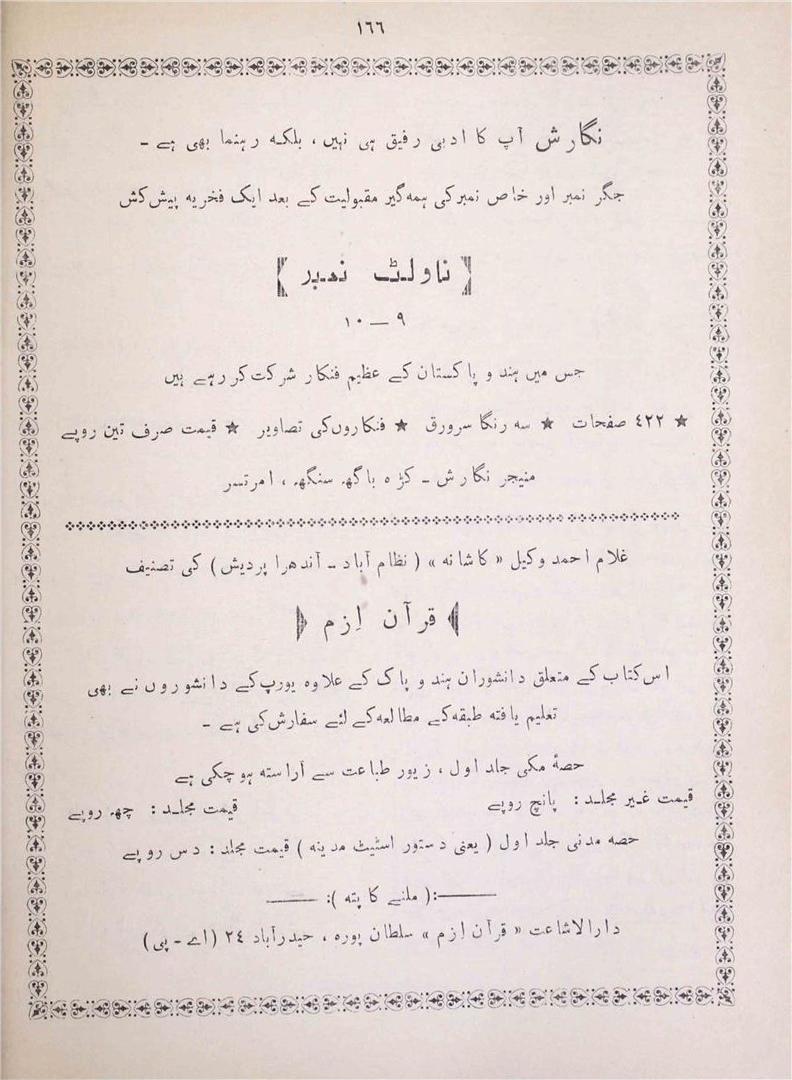 ١٦٦
نگارش آپ کا ادبی رفیق ہی نہیں ، بلکہ رہنما بھی ہے ـ
جگر نمبر اور خاص نمبر کی ہمہ گیر مقبولیت کے بعد ایک فخریہ پیش کش
ناولٹ نمبر
٩ — ١٠
جس میں ہند و پاکستان کے عظیم فنکار شرکت کر رہے ہیں
★ ٤٢٢ صفحات ★ سہ رنگا سرورق ★ فنکاروں کی تصاویر ★ قیمت صرف تین روپے
منیجر نگارش ـ کڑہ باگھ سنگھ ، امرتسر
غلام احمد وکیل « کاشانہ » ( نظام آباد ـ آندھرا پردیش ) کی تصنیف
قرآن اِزم
اس کتاب کے متعلق دانشوران ہند و پاک کے علاوہ یورپ کے دانشوروں نے بھی
تعلیم یافتہ طبقہ کے مطالعہ کے لئے سفارش کی ہے ـ
حصۂ مکی جلد اول ، زیور طباعت سے آراستہ ہو چکی ہے
قیمت غیر مجلد : پانچ روپے قیمت مجلد : چھ روپے
حصہ مدنی جلد اول ( یعنی دستور اسٹیٹ مدینہ ) قیمت مجلد : دس روپے
——:( ملنے کا پتہ ):——
دارالاشاعت « قرآن ازم » سلطان پورہ ، حیدرآباد ٢٤ (اے ـ پی)